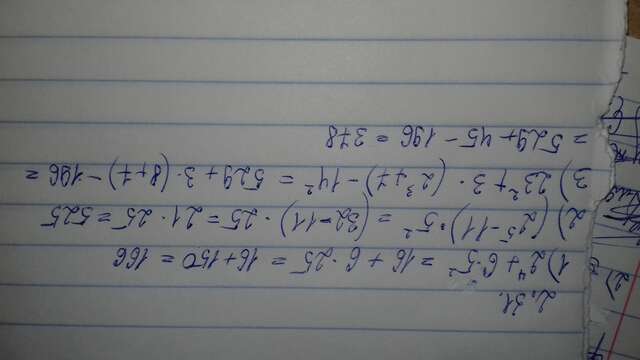 2.31.
1) 2⁴ + 6 · 5² = 16 + 6 · 25 = 16 + 150 = 166
2) (2⁵ - 11) · 5² = (32 - 11) · 25 = 21 · 25 = 525
3) 23² + 3 · (2³ + 7) - 14² = 529 + 3 · (8 + 7) - 196 =
= 529 + 45 - 196 = 378
2)